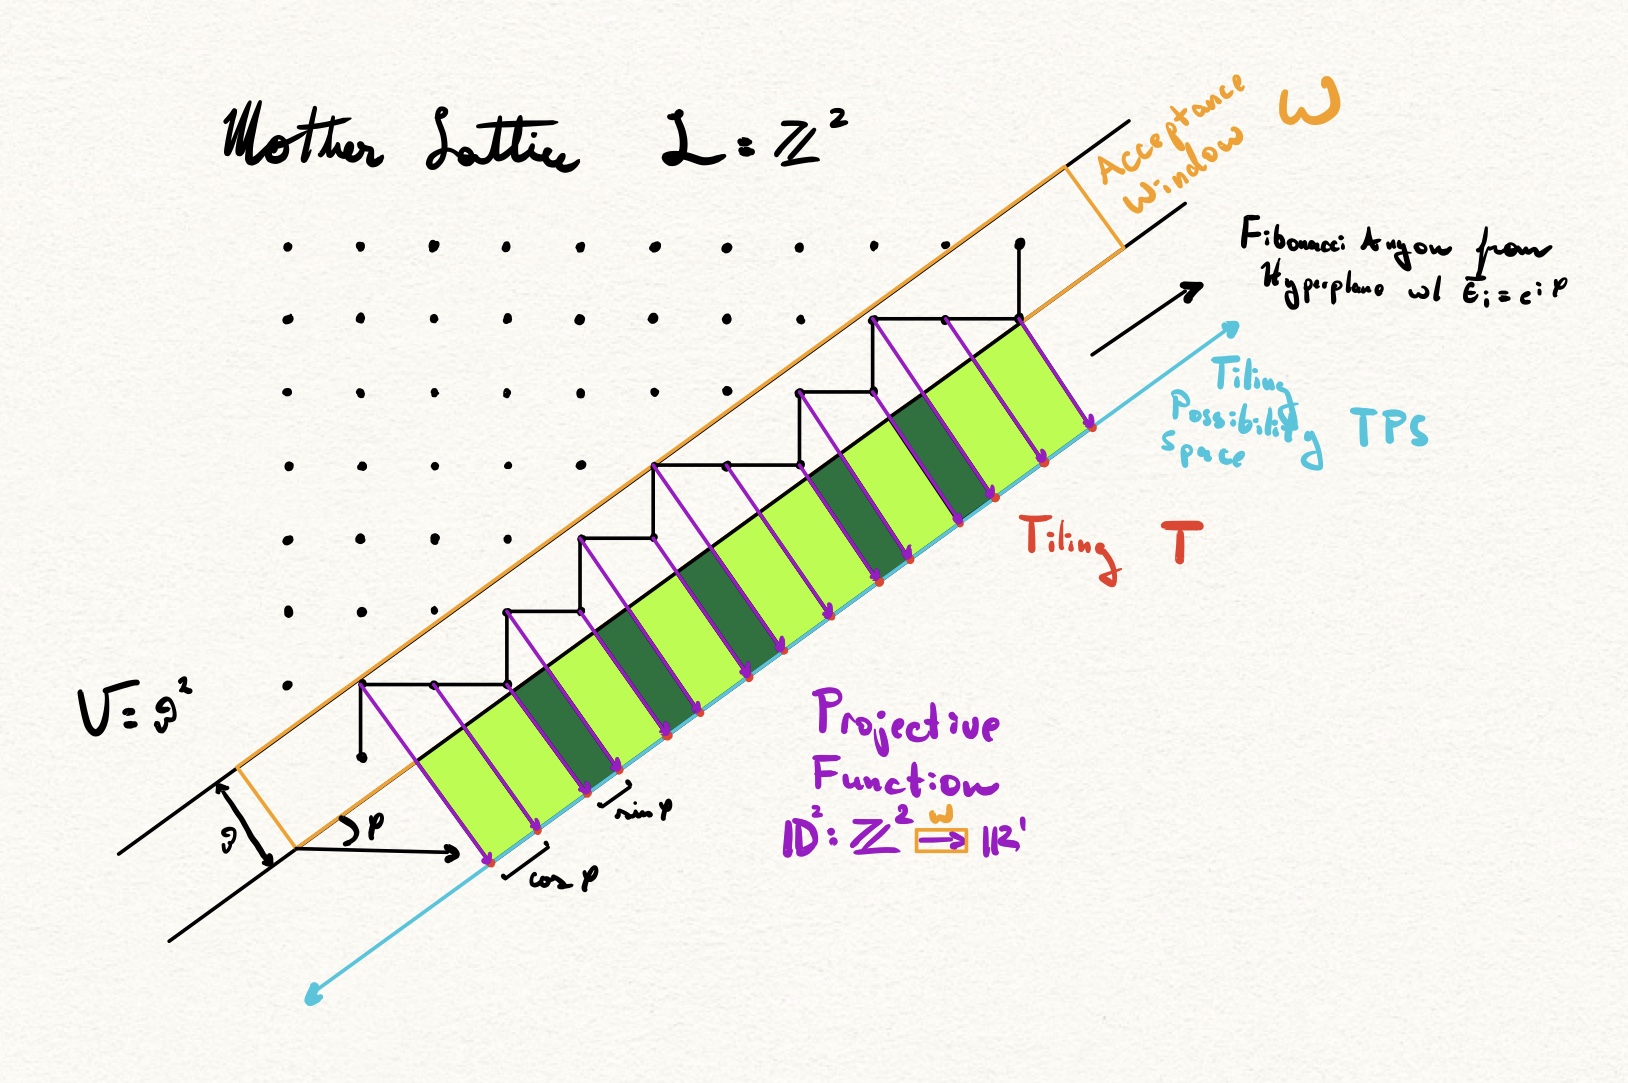 Mother Lattice L = ℤ²
Acceptance
Window W
Fibonacci Anyon from
Hyperplane w/ E_i = e^iφ
Tiling
Possibility
Space
TPS
Tiling T
φ
sin φ
cos φ
Projective
Function
ID²: ℤ² W ⟹ ℝ¹